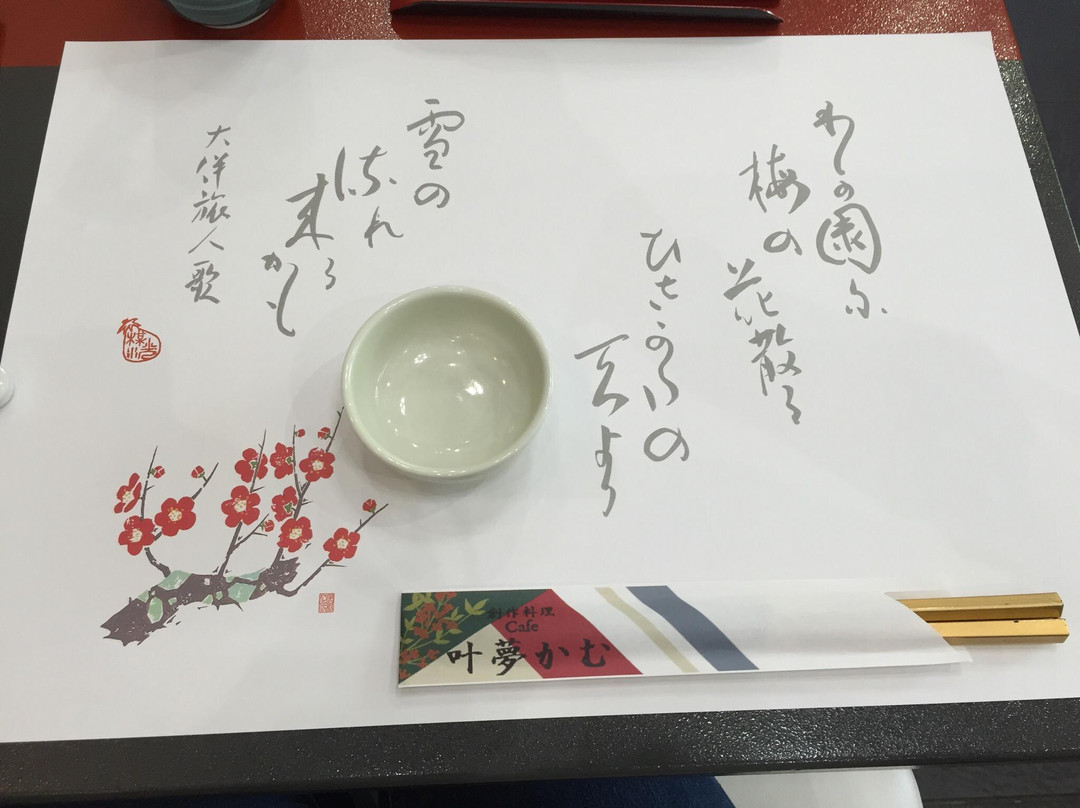 わが園に
梅の
花散る
ひさかたの
天より
雪の
流れ
来る
かも
大伴旅人歌
創作料理
Cafe
叶夢かむ